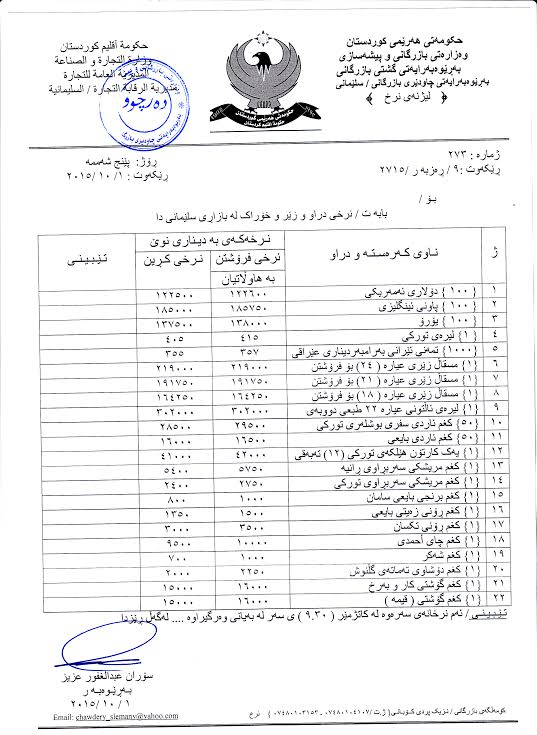 حکومەتی هەرێمی کوردستان
وەزارەتی بازرگانی و پیشەسازی
بەڕێوەبەرایەتی گشتی بازرگانی
بەڕێوەبەرایەتی چاودێری بازرگانی / سلێمانی
﴿ لیژنەی نرخ ﴾
حكومة أقليم كوردستان
وزارة التجارة و الصناعة
المديرية العامة للتجارة
مديرية الرقابة التجارة / السليمانية
دەرچوو
حکومەتی هەرێمی کوردستان
حكومة أقليم كوردستان
ژمارە : ٢٧٣
ڕێکەوت : ٩ / ڕەزبەر / ٢٧١٥
ڕۆژ: پێنج شەممە
ڕێکەوت : ١ / ١٠ / ٢٠١٥
بۆ /
بابەت / نرخی دراو و زێڕ و خۆراک لە بازاڕی سلێمانی دا
ژ ناوی کەرەستە و دراو نرخەکەی بە دیناری نوێ تێبینی
نرخی فرۆشتن بە هاوڵاتیان نرخی کڕین
١ {١٠٠} دۆلاری ئەمەریکی ١٢٢٦٠٠ ١٢٢٥٠٠
٢ {١٠٠} پاونی ئینگلیزی ١٨٥٧٥٠ ١٨٥٠٠٠
٣ {١٠٠} یۆرۆ ١٣٨٠٠٠ ١٣٧٥٠٠
٤ {١} لیرەی تورکی ٤١٥ ٤٠٥
٥ {١٠٠٠} تمەنی ئێرانی بەرامبەردیناری عێراقی ٣٥٧ ٣٥٥
٦ {١} مسقال زێڕی عیارە ( ٢٤ ) بۆ فرۆشتن ٢١٩٠٠٠ ٢١٩٠٠٠
٧ {١} مسقال زێڕی عیارە ( ٢١ ) بۆ فرۆشتن ١٩١٧٥٠ ١٩١٧٥٠
٨ {١} مسقال زێڕی عیارە ( ١٨ ) بۆ فرۆشتن ١٦٤٢٥٠ ١٦٤٢٥٠
٩ {١} لیرەی ئاڵتونی عیارە ٢٢ طبعی دووبەی ٣٠٢٠٠٠ ٣٠٢٠٠٠
١٠ {٥٠} کغم ئاردی سفری بوشلەری تورکی ٢٩٥٠٠ ٢٨٥٠٠
١١ {٥٠} کغم ئاردی بایعی ١٦٥٠٠ ١٦٠٠٠
١٢ {١} یەک کارتۆن هێلکەی تورکی (١٢) تەبەقی ٤٢٠٠٠ ٤١٠٠٠
١٣ {١} کغم مریشکی سەربڕاوی ڕانیە ٥٧٥٠ ٥٤٠٠
١٤ {١} کغم مریشکی سەربڕاوی تورکی ٢٧٥٠ ٢٤٠٠
١٥ {١} کغم برنجی بایعی سامان ١٠٠٠ ٨٠٠
١٦ {١} کغم ڕۆنی زەیتی بایعی ١٥٠٠ ١٣٥٠
١٧ {١} کغم ڕۆنی تکسان ٣٥٠٠ ٣٠٠٠
١٨ {١} کغم چای أحمدی ١٠٠٠٠ ٩٥٠٠
١٩ {١} کغم شەکر ١٠٠٠ ٧٠٠
٢٠ {١} کغم دۆشاوی تەماتەی گڵنوش ٢٢٥٠ ٢٠٠٠
٢١ {١} کغم گۆشتی کار و بەرخ ١٦٠٠٠ ١٥٠٠٠
٢٢ {١} کغم گۆشتی ( قیمە ) ١٦٠٠٠ ١٥٠٠٠
تێبینی / ئەم نرخانەی سەرەوە لە کاتژمێر ( ٩.٣٠ ) ی سەر لە بەیانی وەرگیراوە .... لەگەڵ ڕێزدا
سۆران عبدالغفور عزیز
بەڕێوەبەر
٢٠١٥/١٠/١
Email: chawdery_slemany@yahoo.com
کۆمەڵگەی بازرگانی / نزیک پردی کۆبانی ( ژ.ت / ٠٧٤٨٠١٠٤١٠٧ ـ ٠٧٤٨٠١٠٣١٥٣ ) نرخ